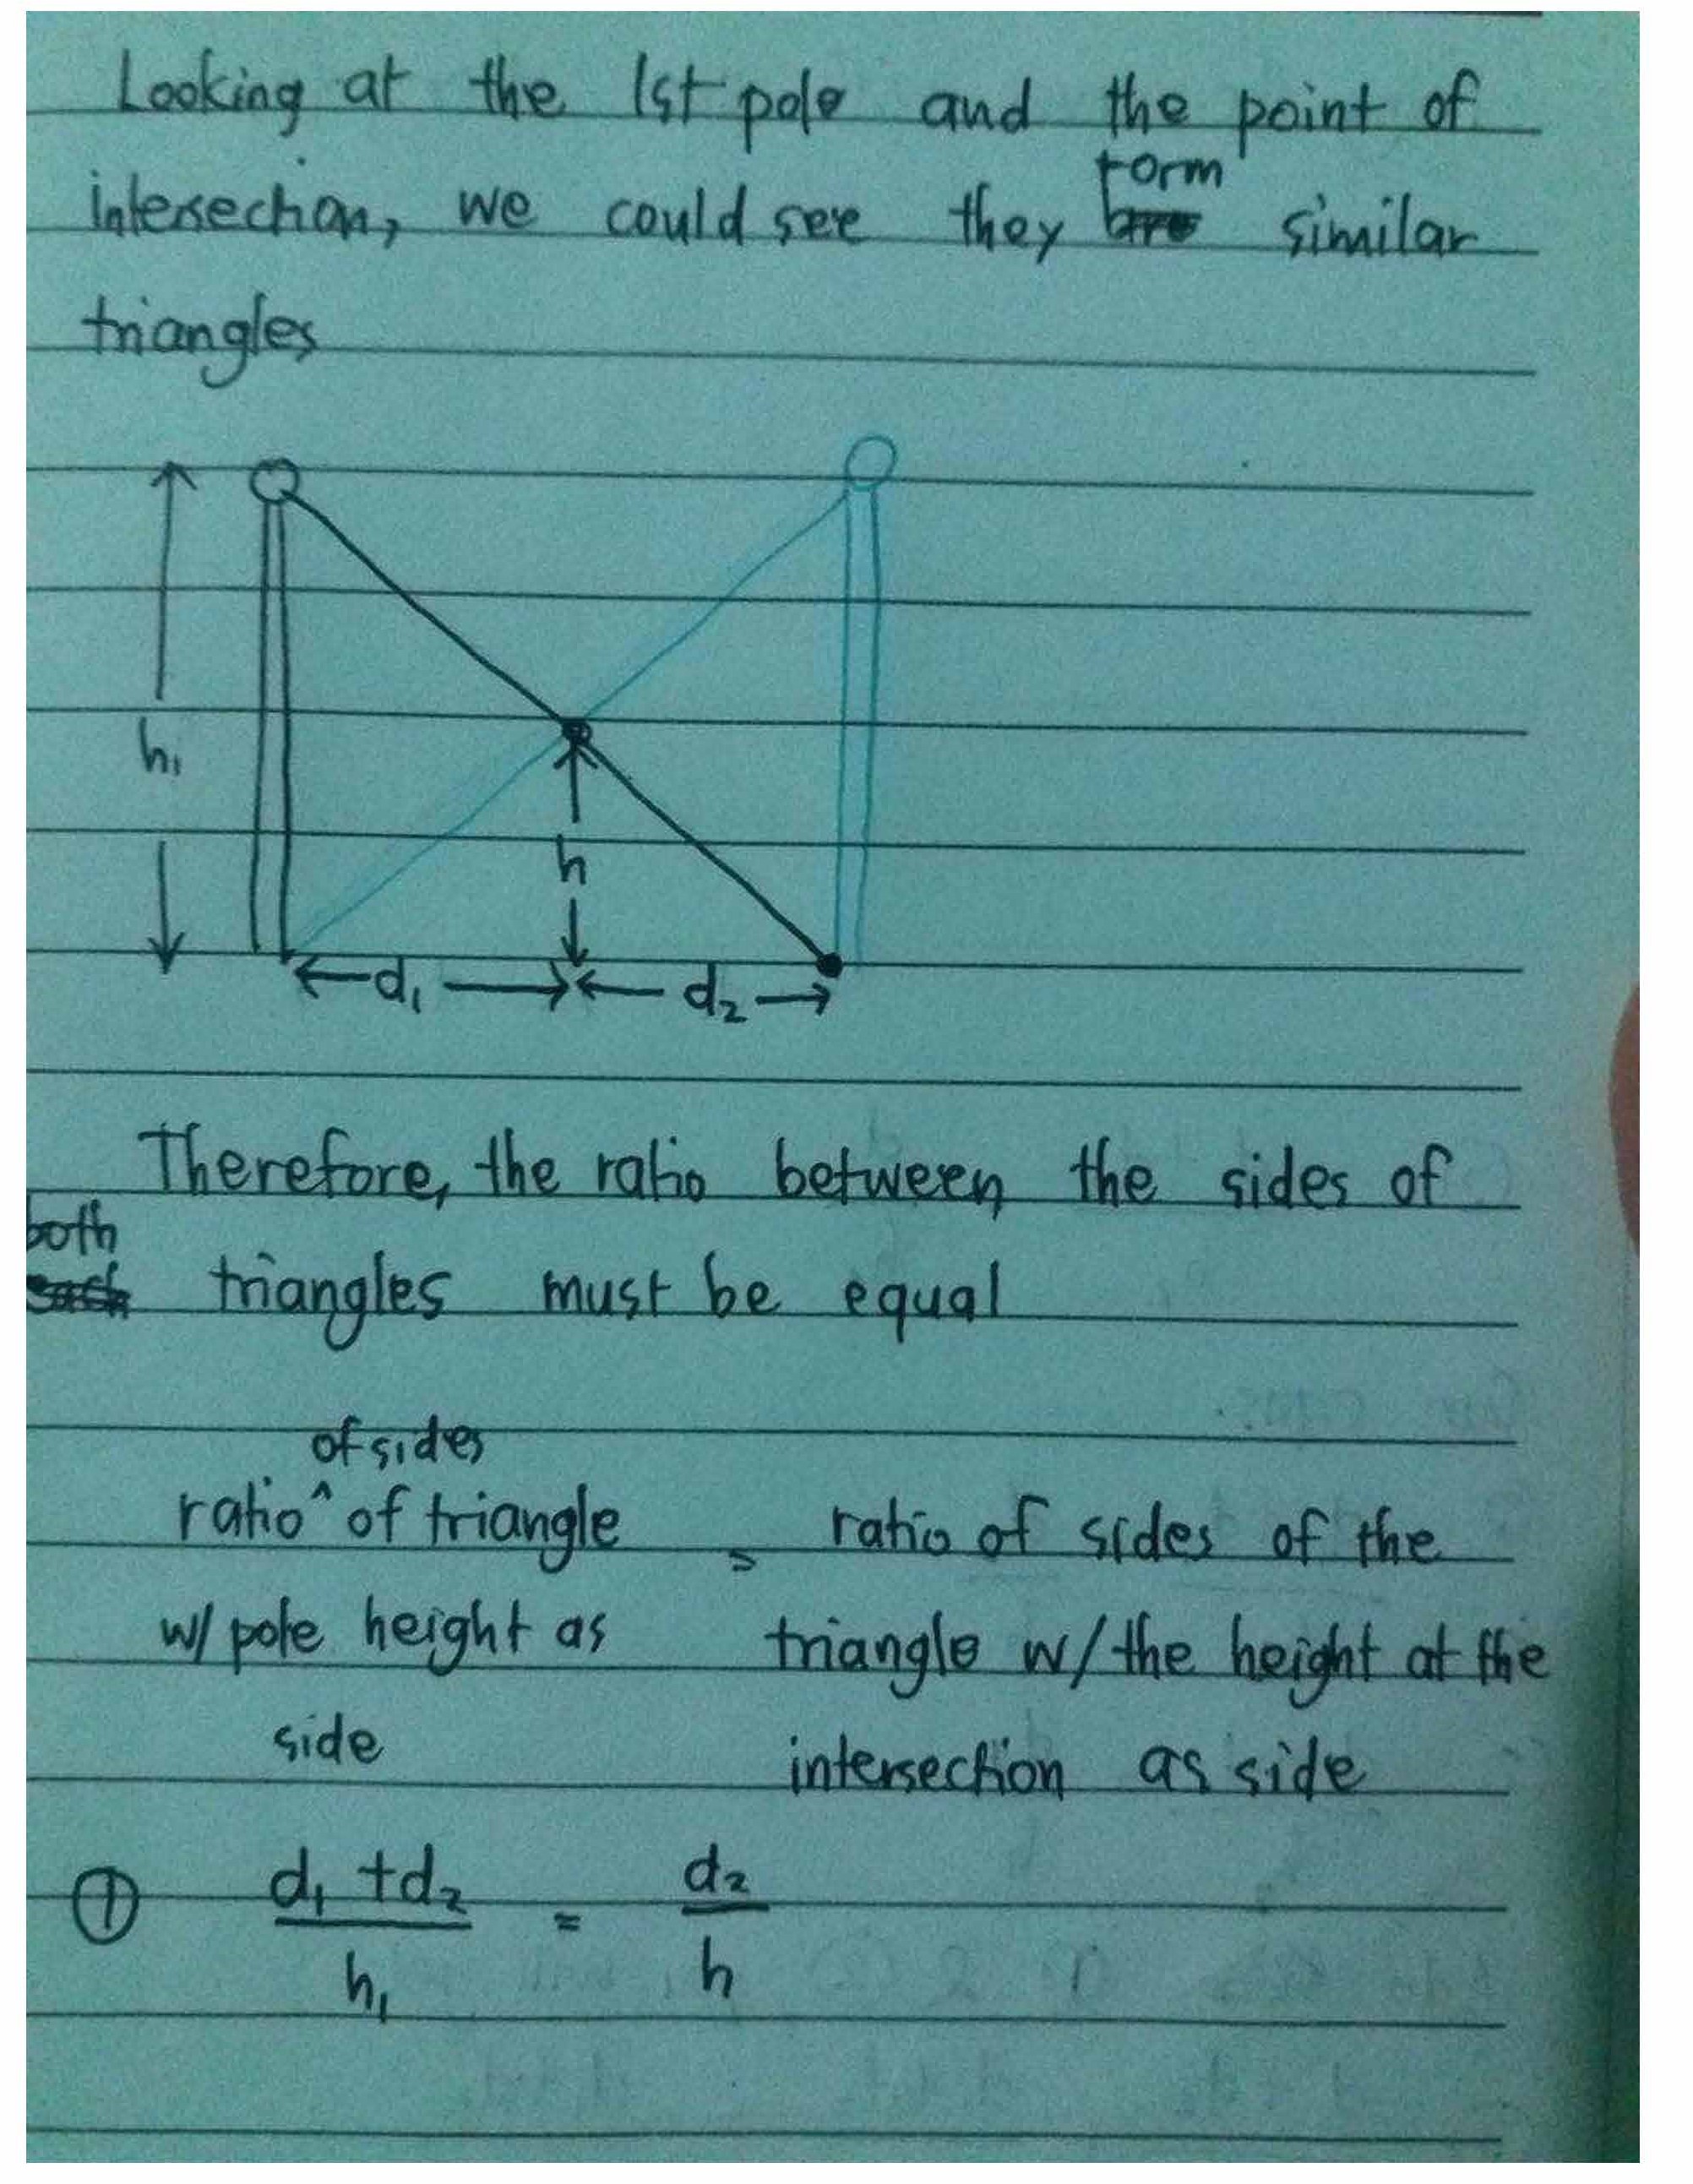 Looking at the 1st pole and the point of
form
intersection, we could see they similar
triangles
h₁
h
d₁ d₂
Therefore, the ratio between the sides of
both
triangles must be equal
of sides
ratio ^ of triangle = ratio of sides of the
w/ pole height as triangle w/ the height at the
side intersection as side
① d₁ + d₂ = d₂
h₁ h